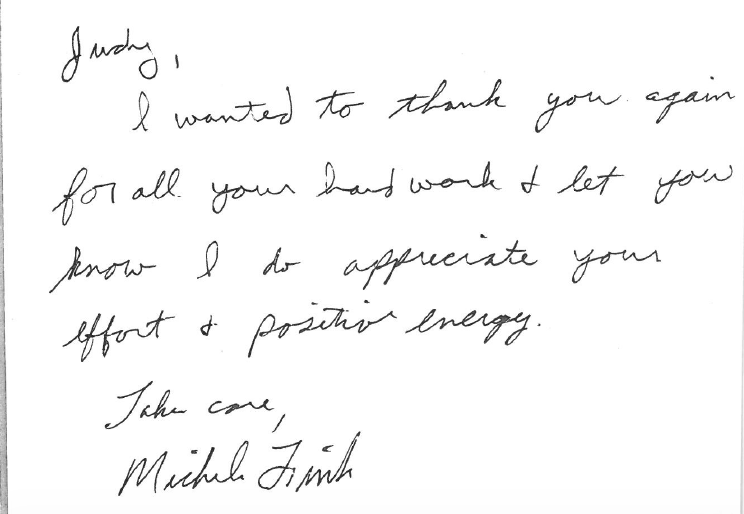 Judy,
I wanted to thank you again
for all your hard work & let you
know I do appreciate your
effort & positive energy.
Take care,
Michele Fink